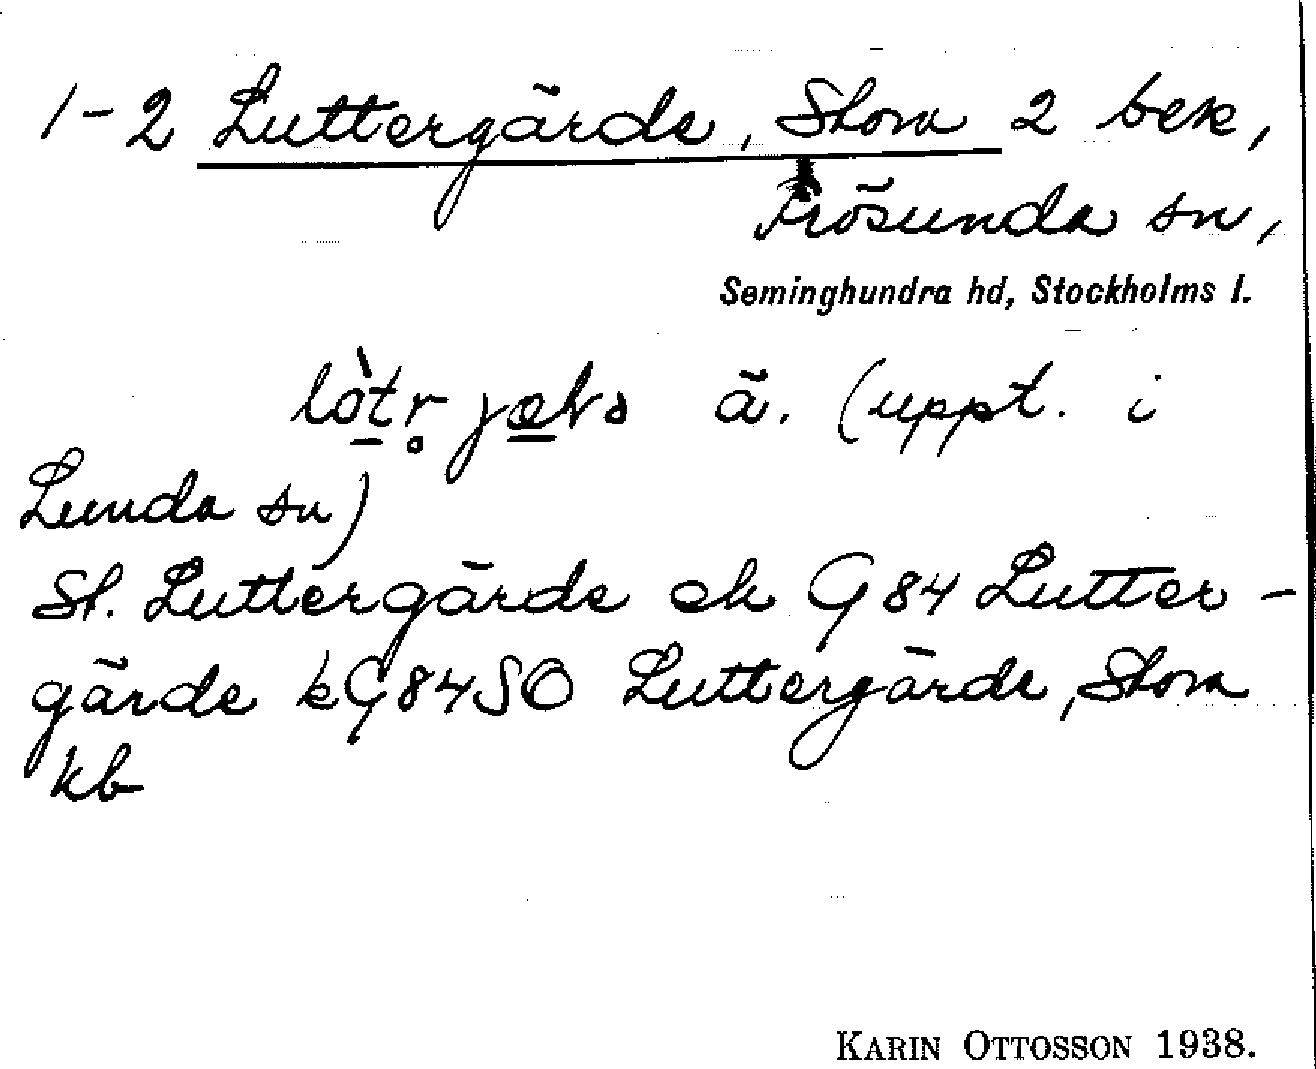 1-2 Luttergärde, Stora 2 bek,
Frösunda sn,
Seminghundra hd, Stockholms l.
ä. (uppt. i
Lunda sn)
St. Luttergärde ek G84 Lutter-
gärde kG84SO Luttergärde, Stora
kb
KARIN OTTOSSON 1938.